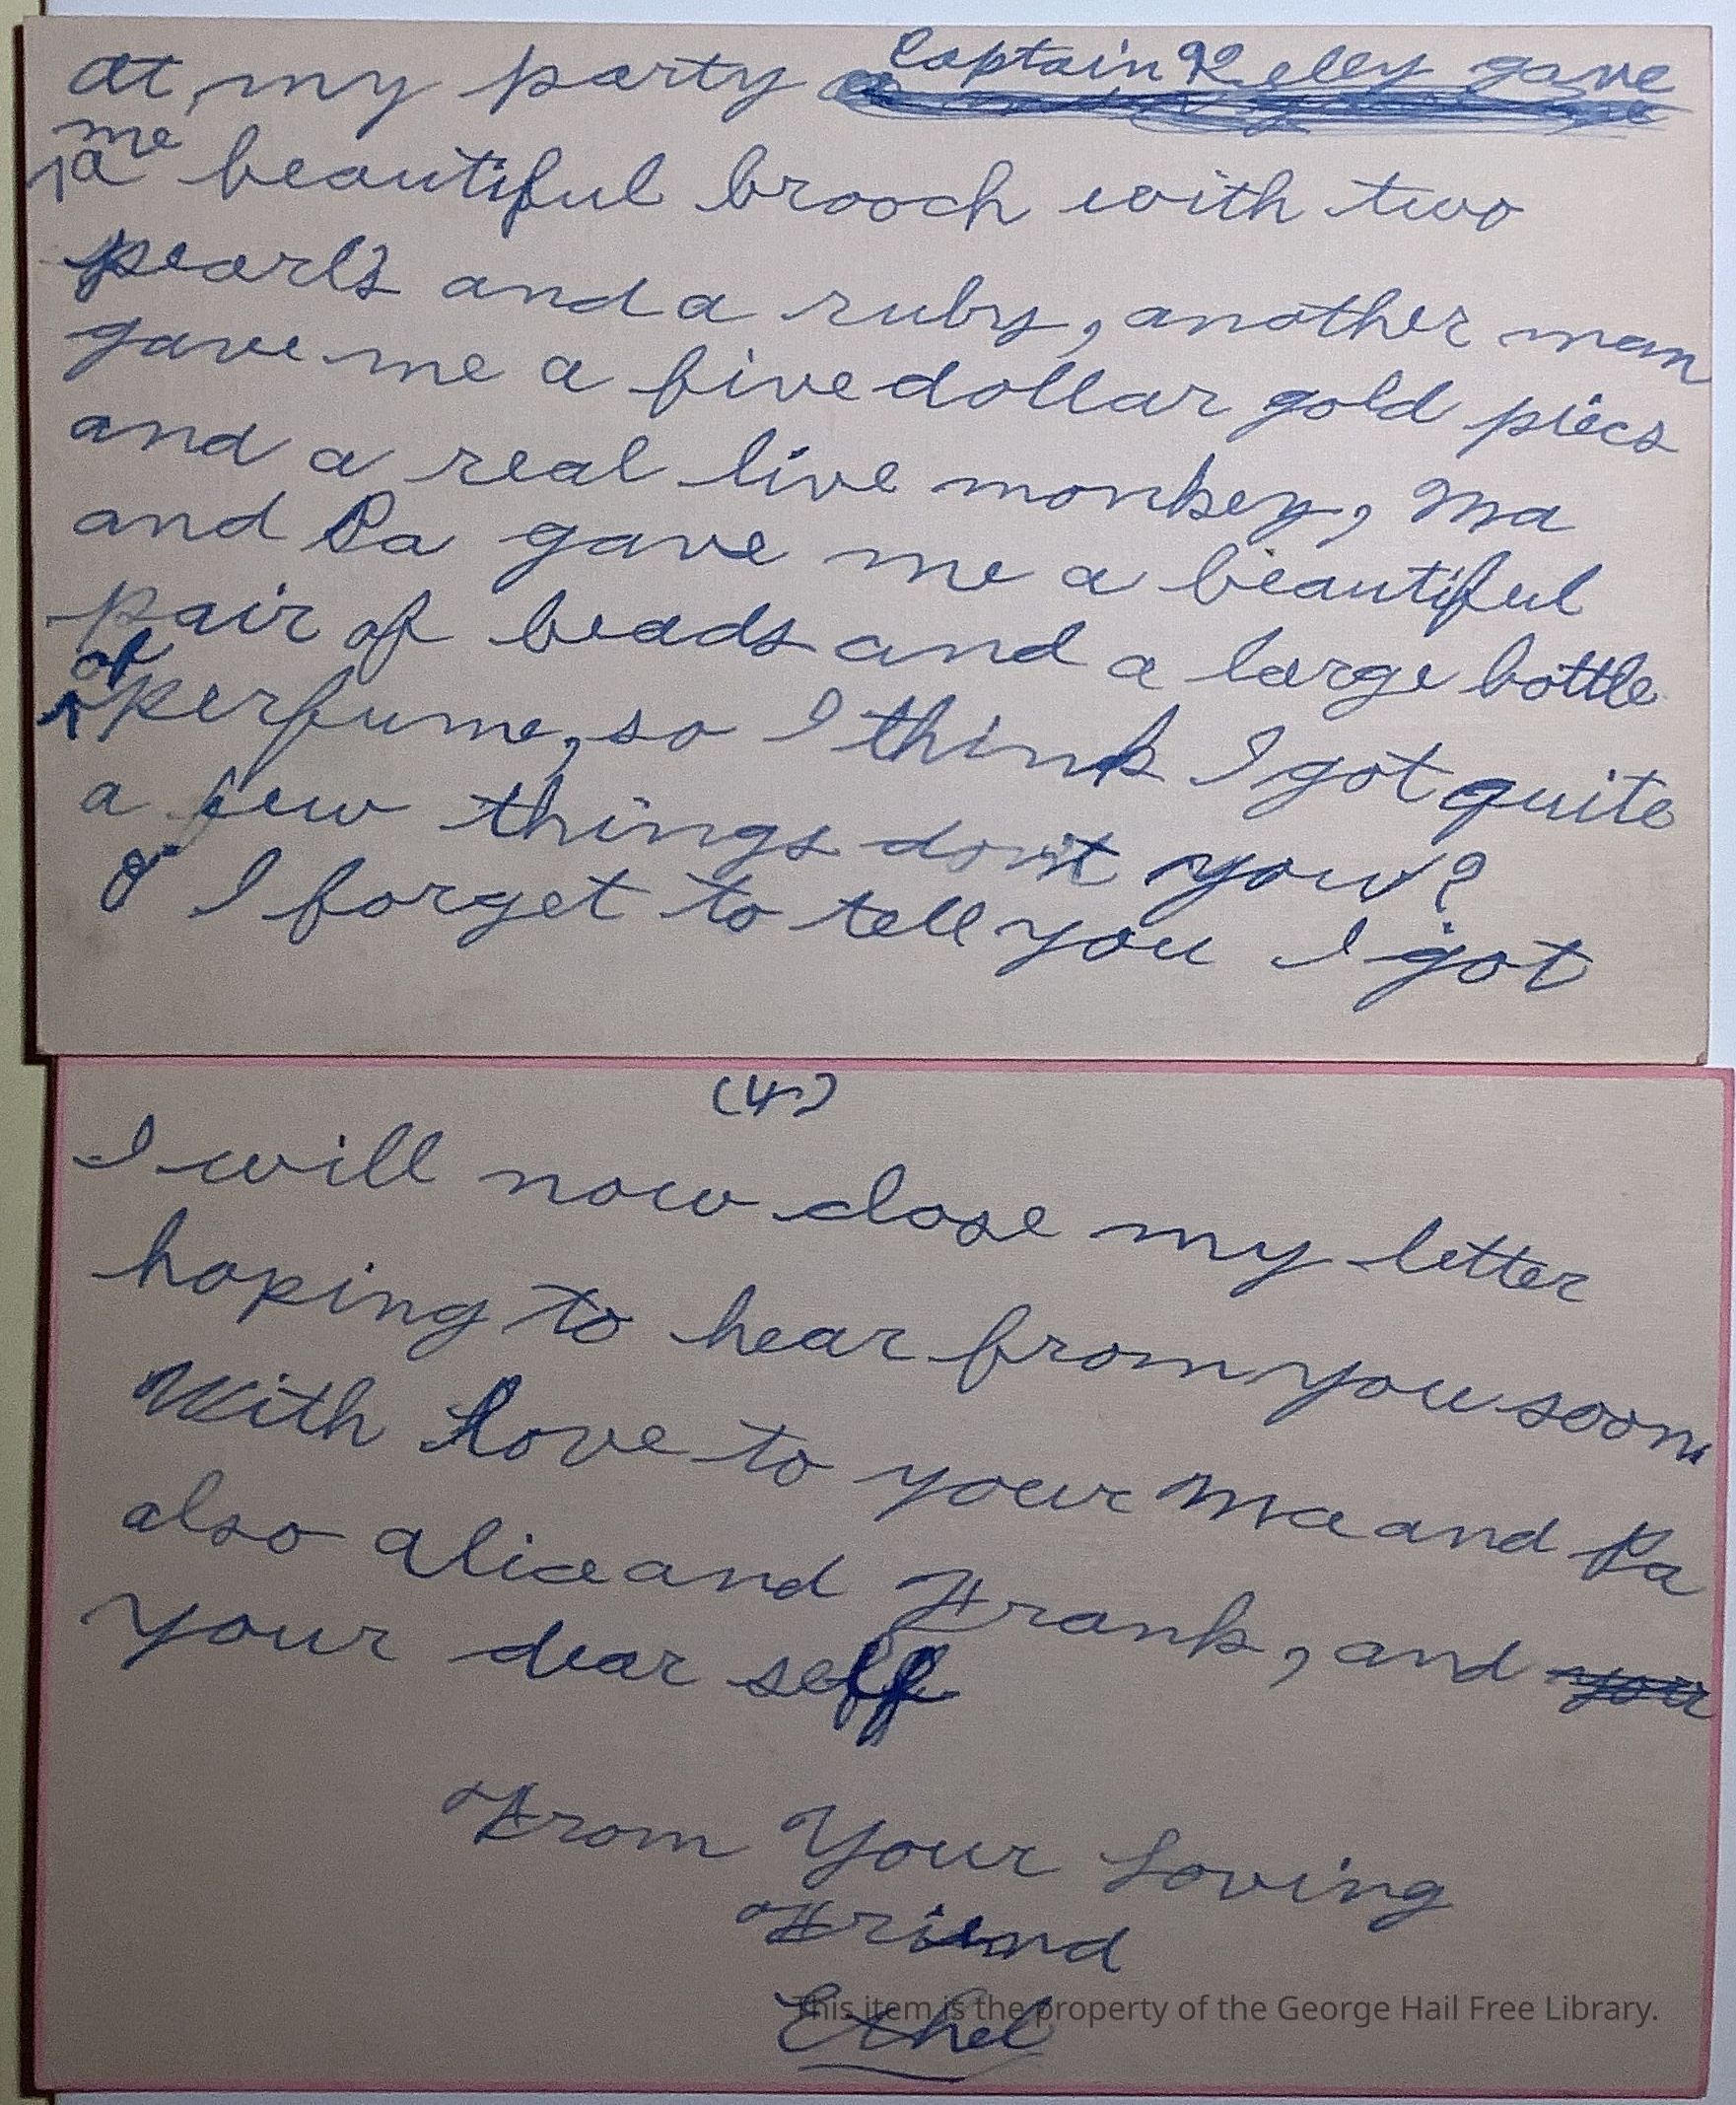 at my party Captain Kelly gave
me
a beautiful brooch with two
pearls and a ruby, another man
gave me a five dollar gold piece
and a real live monkey, Ma
and Pa gave me a beautiful
pair of beads and a large bottle
of
perfume, so I think I got quite
a few things don't you?
O I forget to tell you I got
(4)
I will now close my letter
hoping to hear from you soon
With Love to your Ma and Pa
also Alice and Frank, and you
your dear self
From Your Loving
Friend
Ethel
This item is the property of the George Hail Free Library.